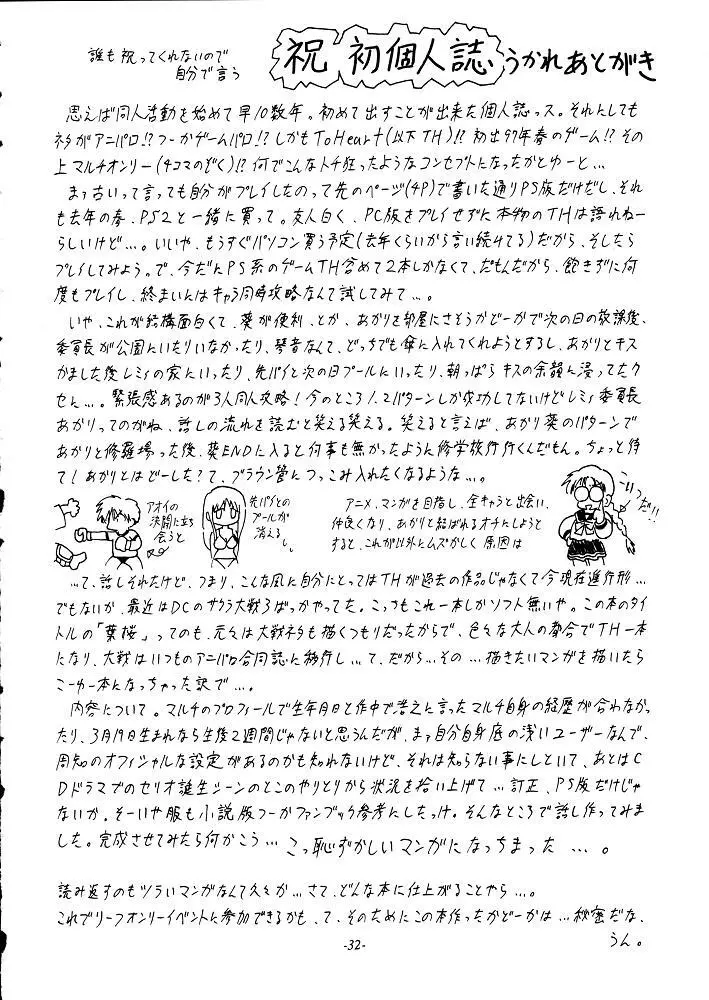 誰も祝ってくれないので
自分で言う
祝 初個人誌 うかれあとがき
思えば同人活動を始めて早10数年。初めて出すことが出来た個人誌っス。それにしても
ネタがアニパロ!?つーかゲームパロ!?しかもToHeart(以下TH)!?初出97年春のゲーム!?その
上マルチオンリー(4コマのぞく)!?何でこんなトチ狂ったようなコンセプトになったかとゆーと…
まぁ古いって言っても自分がプレイしたのって先のページ(4P)で書いた通りPS版だけだし、それ
も去年の春、PS2と一緒に買って。友人曰く、PC版をプレイせずに本物のTHは語れねー
らしいけど…。いいや、もうすぐパソコン買う予定(去年くらいから言い続けてる)だから、そしたら
プレイしてみよう。で、今だにPS系のゲームTH含めて2本しかなくて、だもんだから、飽きずに何
度もプレイし、終まいにはキャラ同時攻略なんて試してみて…。
いや、これが結構面白くて、葵が便利、とか、あかりを部屋にさそうかどーかで次の日の放課後、
委員長が公園にいたりいなかったり、琴音なんて、どっちでも傘に入れてくれようとするし、あかりとキス
かました後レミィの家にいったり、先パイと次の日プールにいったり、朝っぱらキスの余韻に浸ってたク
セに…。緊張感あるのが3人同人攻略!今のところ1、2パターンしか成功してないけどレミィ委員長
あかりってのがね、話しの流れを読むと笑える笑える。笑えると言えば、あかり葵のパターンで
あかりと修羅場った後、葵ENDに入ると何事も無かったように修学旅行行くんだもん。ちょっと待
て!あかりとはどーした?て、ブラウン管につっこみ入れたくなるような…。
アオイの
決闘に立ち
会うと
先パイとの
プールが
消えるし。
アニメ、マンガを目指し、全キャラと出会い、
仲良くなり、あかりと結ばれるオチにしようと
すると、これが以外にムズかしく原因は
…て、話しそれたけど、つまり、こんな風に自分にとってはTHが過去の作品じゃなくて今現在進行形…
でもないか、最近はDCのサクラ大戦3ばっかやってた。こっちもこれ一本しかソフト無いや。この本のタイ
トルの「葉桜」ってのも、元々は大戦ネタも描くつもりだったからで、色々な大人の都合でTH一本
になり、大戦はいつものアニパロ合同誌に移行し…て、だから…その…描きたいマンガを描いたら
こーゆー本になっちゃった訳で…。
内容について。マルチのプロフィールで生年月日と作中で浩之に言ったマルチ自身の経歴が合わなか
ったり、3月19日生まれなら生後2週間じゃないと思うんだが、まぁ自分自身底の浅いユーザーなんで、
周知のオフィシャルな設定があるのかも知れないけど、それは知らない事にしといて、あとはC
DドラマでのセリオR生シーンのとこのやりとりから状況を拾い上げて…訂正、PS版だけじゃ
ないか。そーいや服も小説版つーかファンブック参考にしたっけ。そんなところで話し作ってみま
した。完成させてみたら何かこう… こっ恥ずかしいマンガになっちまった…。
読み返すのもツラいマンガなんて久々か…さて、どんな本に仕上がることやら…。
これでリーフオンリーイベントに参加できるかも、て、そのためにこの本作ったかどーかは…秘密だな、
うん。
-32-